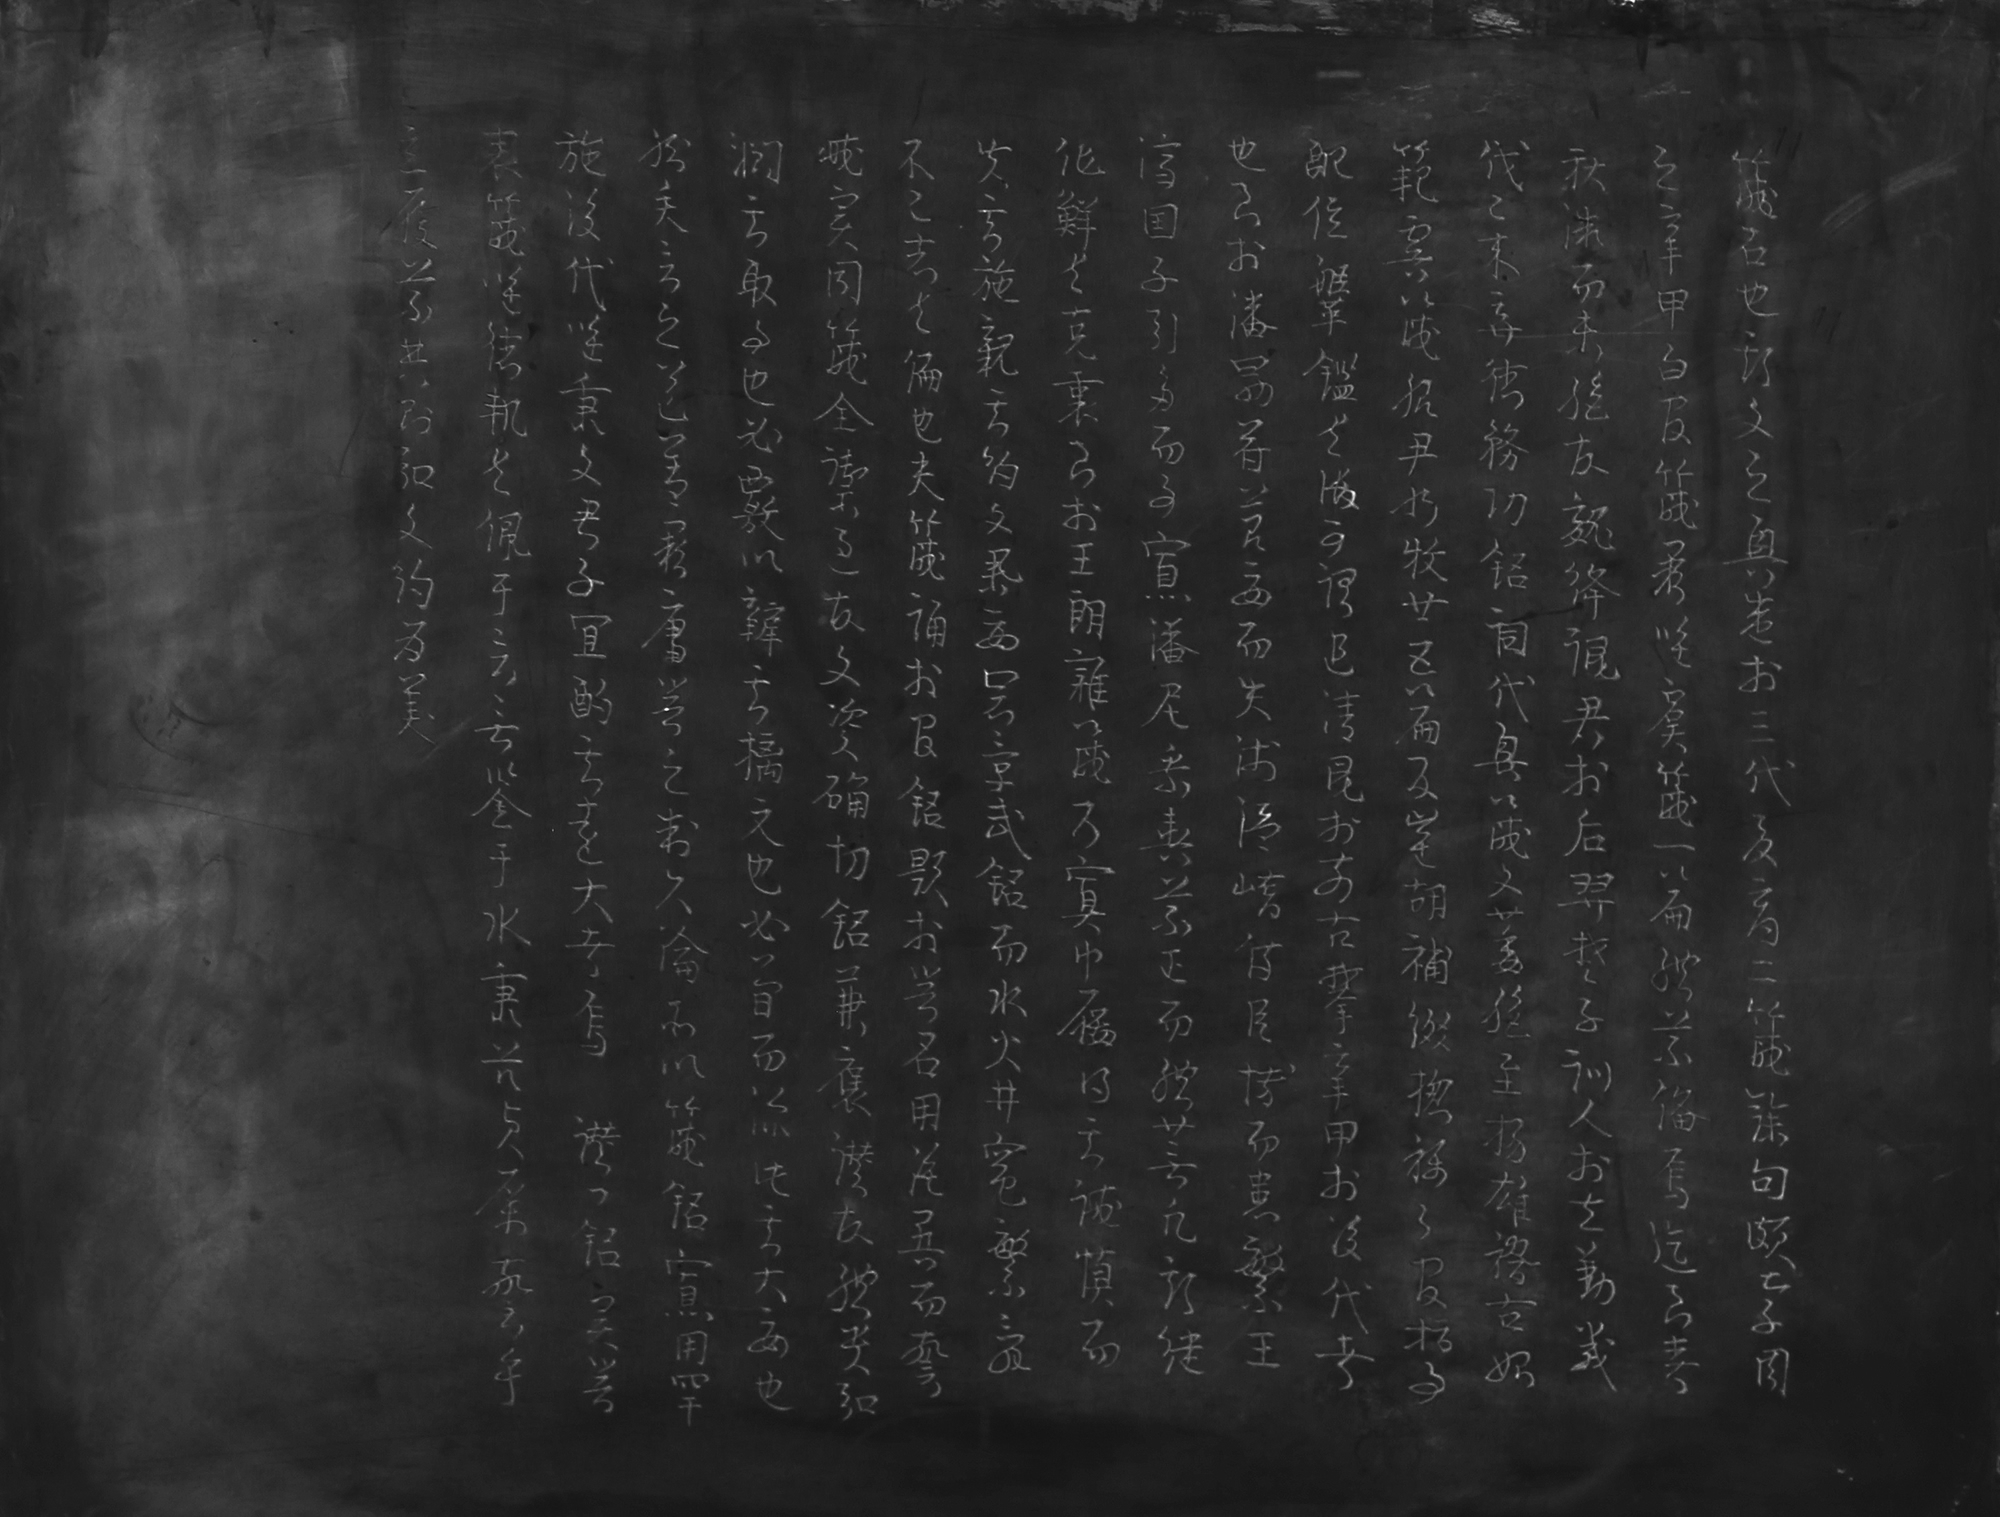 箴石也斯文之興盛於三代夏商二箴餘句頗存及周
之辛甲百官箴闕唯虞箴一篇體義備焉迄至春
秋微而未絶故魏絳諷君於后羿楚子訓人於在勤戰
代已来棄德務功銘詞代興箴文萎絶至揚雄稽古始
範虞箴作卿尹州牧廿五篇及崔胡補綴揔稱百官指事
配位鞶鑑有徵可謂追清風於前古攀辛甲於後代者
也至於潘勗符節要而失淺温嶠侍臣博而患繁王
濟国子引多而事寡潘尼乘輿義正而體蕪凡斯继
作鮮有克衷至於王朗雜箴乃寘巾履得其誡慎而
失其所施觀其約文舉要憲章武銘而水火井竈繁辞
不已志有偏也夫箴誦於官銘題於器名用雖異而警
誡實同箴全禦過故文資確切銘兼褒讚故體貴弘
潤其取事也必覈以辨其摛文也必簡而深此其大要也
然矢言之道蓋闕庸器之制久淪所以箴銘寡用罕
施後代唯秉文君子宜酌其遠大者焉 讚曰銘實器
表箴唯德軌有佩于言無鑒于水秉茲貞厲敬言乎
立履義典則弘文約為美